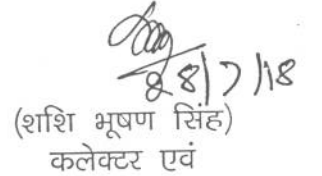 28/7/18
(शशि भूषण सिंह)
कलेक्टर एवं